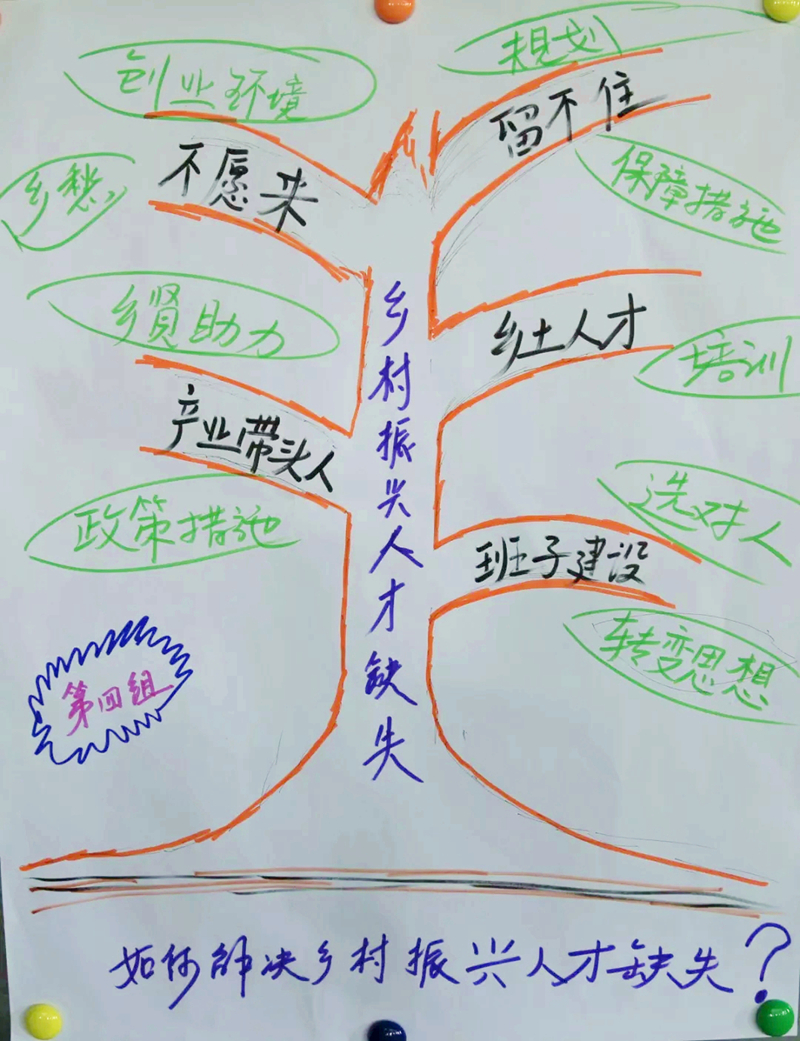 规划
创业环境
留不住
不愿来
乡愁
保障措施
乡贤助力
乡土人才
培训
产业带头人
政策措施
选对人
班子建设
转变思想
乡村振兴人才缺失
第四组
如何解决乡村振兴人才缺失？